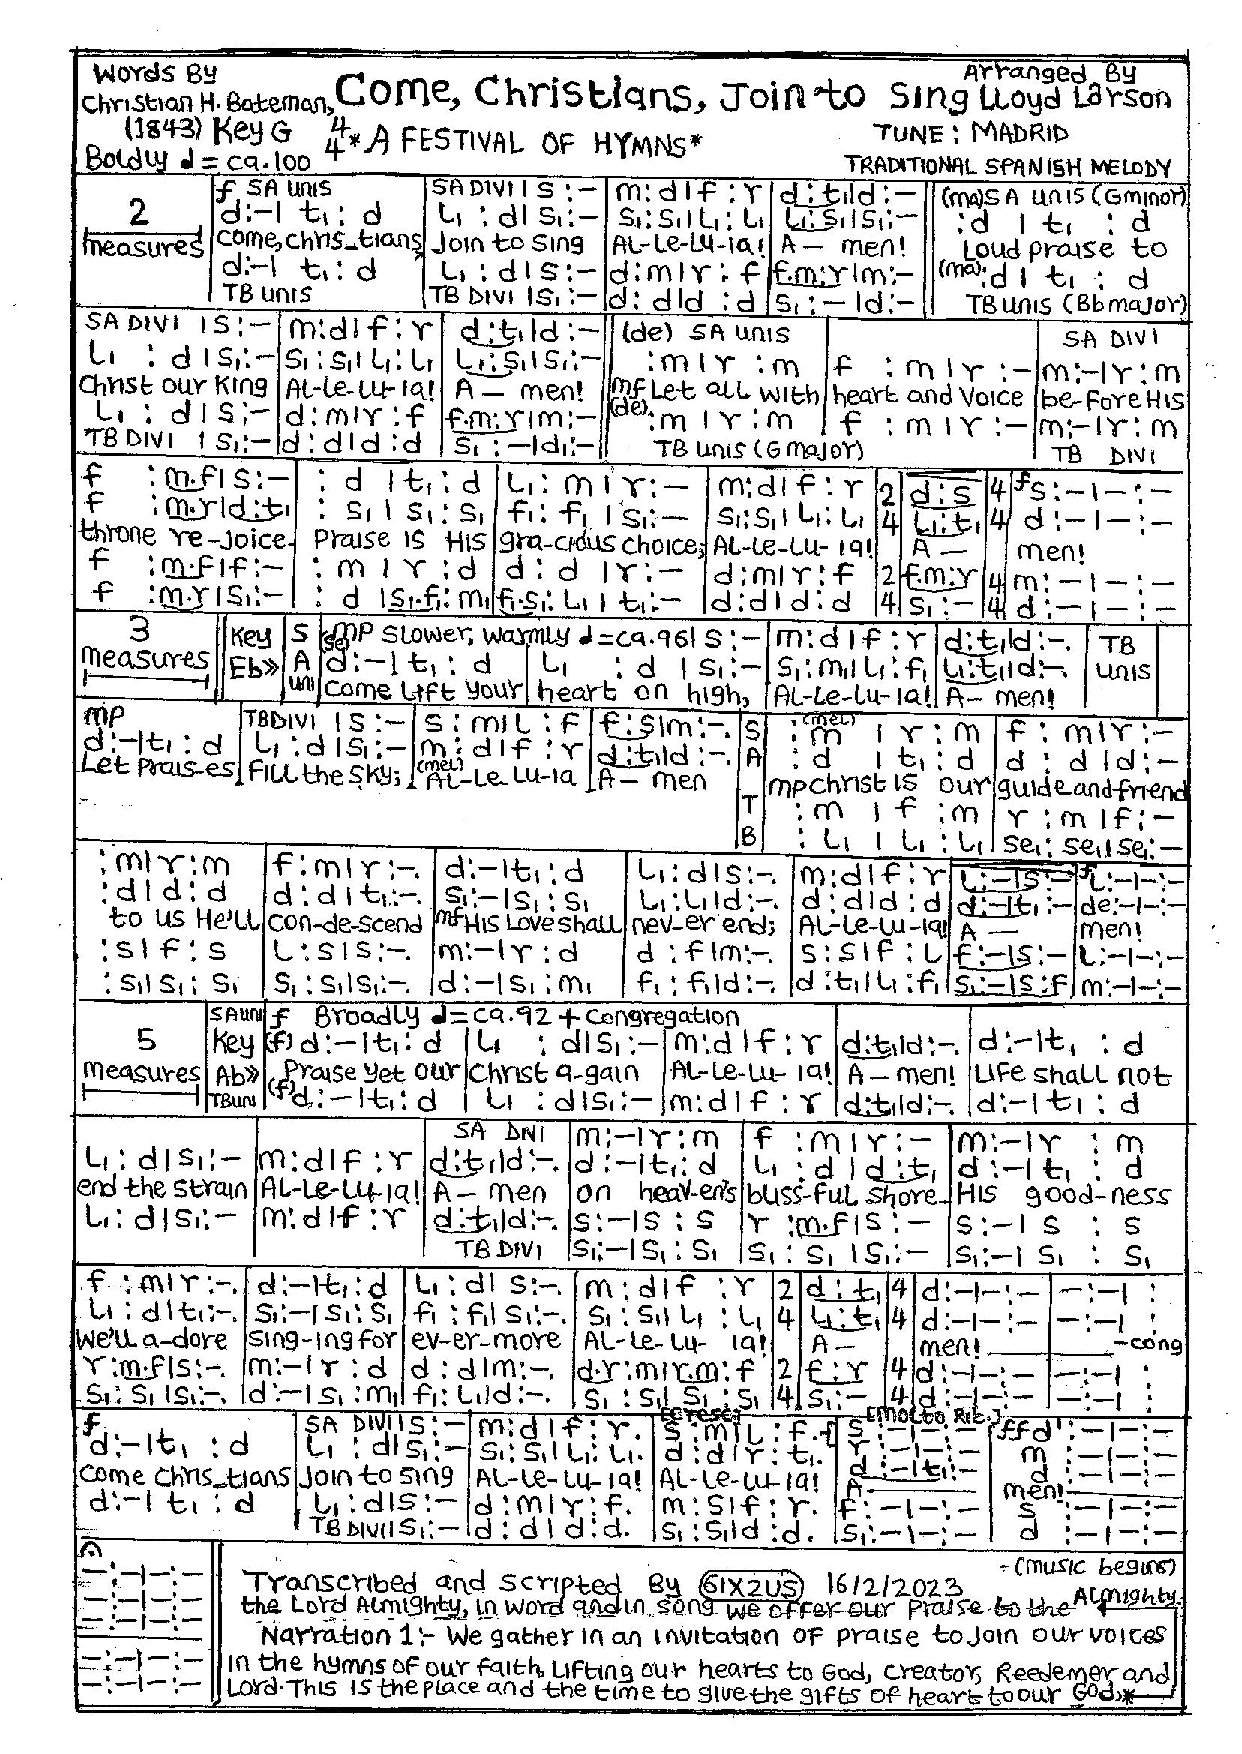 Words By
Christian H. Bateman,
(1843) Key G 4/4
Boldly ♩= ca.100
Come, Christians, Join to Sing
* A FESTIVAL OF HYMNS *
Arranged By
Lloyd Larson
TUNE: MADRID
TRADITIONAL SPANISH MELODY
2 measures
f SA unis
d:-| t₁: d
Come, chris_tians,
d:-| t₁: d
TB unis
SA DIVI | S:-
L₁ : d | S₁:-
Join to sing
L₁ : d | S:-
TB DIVI | S₁:-
m:d|f:r
S₁:S₁|L₁:L₁
AL-Le-Lu-ia!
d:m|r:f
d:d|d:d
d:t₁|d:-
L₁:S₁|S₁:-
A— men!
f.m:r|m:-
S₁:-|d:-
(ma) SA unis (G minor)
:d | t₁ : d
Loud praise to
(ma): d | t₁ : d
TB unis (Bb major)
SA DIVI | S:-
L₁ : d | S₁:-
Christ our King
L₁ : d | S:-
TB DIVI | S₁:-
m:d|f:r
S₁:S₁|L₁:L₁
AL-Le-Lu-ia!
d:m|r:f
d:d|d:d
d:t₁|d:-
L₁:S₁|S₁:-
A— men!
f.m:r|m:-
S₁:-|d₁:-
(de) SA unis
:m | r :m
mf Let all with
(de). :m | r :m
TB unis (G major)
f :m | r :-
heart and voice
f :m | r :-
SA DIVI
m:-|r:m
be-fore His
m:-|r:m
TB DIVI
f :m.f|S:-
f :m.r|d:t₁
throne re-joice.
f :m.f|f:-
f :m.r|S₁:-
: d |t₁: d
: S₁| S₁:S₁
Praise is His
: m | r :d
: d |S₁.f₁:m₁
L₁: m | r:-
f₁: f₁ |S₁:-
gra-cious choice;
d : d |r:-
f₁.S₁:L₁| t₁:-
m:d|f:r
S₁:S₁|L₁:L₁
AL-Le-Lu-ia!
d:m|r:f
d:d|d:d
2/4 d:S
L₁:t₁
A—
2/4 f.m:r
S₁:-
4/4 f S:-|-:-
d:-|-:-
men!
4/4 m:-|-:-
d:-|-:-
3 measures
Key Eb»
SA uni
mp Slower, warmly ♩=ca.96
d:-|t₁: d
Come Lift your
| S:-
L₁ : d | S₁:-
heart on high,
m:d|f:r
S₁:m₁|L₁:f₁
AL-Le-Lu-ia!
d:t₁|d:-.
L₁:t₁|d:-.
A— men!
TB unis
mp
d:-|t₁: d
Let Prais-es
TB DIVI | S:-
L₁: d|S₁:-
fill the sky;
S:m|L:f
m:d|f:r
(mel) AL-Le Lu-ia
f:S|m:-.
d:t₁|d:-.
A— men
S A T B
(mel) :m | r :m
:d | t₁:d
mp christ is our
:m | f :m
:L₁ | L₁:L₁
f : m| r:-
d : d |d:-
guide and friend
r : m|f:-
Se₁: Se₁|Se₁:-
:m|r:m
:d|d:d
to us He'll
:S|f:S
:S₁|S₁:S₁
f:m|r:-.
d:d|t₁:-.
con-de-scend
L:S|S:-.
S₁:S₁|S₁:-.
d:-|t₁:d
S₁:-|S₁:S₁
mf His Love shall
m:-|r:d
d:-|S₁:m₁
L₁:d|S:-.
L₁:L₁|d:-.
nev-er end;
d :f|m:-.
f₁:f₁|d:-.
m:d|f:r
d:d|d:d
AL-Le-Lu-ia!
S:S|f:L
d:t₁|L₁:f₁
L:-|S:-
d:-|t₁:-
A—
f:-|S:-
S₁:-|S:f
f L:-|-:-
de:-|-:-
men!
L:-|-:-
m:-|-:-
5 measures
SA uni
Key Ab»
TB uni
f Broadly ♩=ca.92 + Congregation
(f) d:-|t₁: d
Praise yet our
(f) d:-|t₁: d
L₁ : d|S₁:-
Christ a-gain
L₁ : d|S₁:-
m:d|f:r
AL-Le-Lu-ia!
m:d|f:r
d:t₁|d:-.
A— men!
d:t₁|d:-.
d:-|t₁ : d
Life shall not
d:-|t₁ : d
L₁: d|S₁:-
end the strain
L₁: d|S₁:-
m:d|f:r
AL-Le-Lu-ia!
m:d|f:r
SA DIVI
d:t₁|d:-.
A— men
d:t₁|d:-.
TB DIVI
m:-|r:m
d:-|t₁:d
on heaven's
S:-|S:S
S₁:-|S₁:S₁
f :m|r:-
L₁:d|d:t₁
bliss-ful shore_
r :m.f|S:-
S₁:S₁|S₁:-
m:-|r : m
d:-|t₁ : d
His good-ness
S:-|S : S
S₁:-|S₁ : S₁
f:m|r:-.
L₁:d|t₁:-.
we'll a-dore
r:m.f|S:-.
S₁:S₁|S₁:-.
d:-|t₁:d
S₁:-|S₁:S₁
sing-ing for
m:-|r:d
d:-|S₁:m₁
L₁:d|S:-.
f₁:f₁|S₁:-.
ev-er-more
d:d|m:-.
f₁:L₁|d:-.
m:d|f:r
S₁:S₁|L₁:L₁
AL-Le-Lu-ia!
d.r:m|r.m:f
S₁:S₁|S₁:S₁
2/4 d:t₁
L₁:t₁
A—
2/4 f:r
S₁:-
4/4 d:-|-:-
d:-|-:-
men!
4/4 d:-|-:-
d:-|-:-
-:-| :
-:-| :
-cong
-:-| :
-:-| :
f
d:-|t₁:d
Come Chris_tians
d:-|t₁:d
SA DIVI | S:-
L₁:d|S₁:-
Join to sing
L₁:d|S:-
TB DIVI | S₁:-
m:d|f:r.
S₁:S₁|L₁:L₁.
AL-Le-Lu-ia!
d:m|r:f.
d:d|d:d.
S:m|L:f.
d:d|r:t₁.
AL-Le-Lu-ia!
m:S|f:r.
S₁:S₁|d:d.
[Molto Rit.]
f S:-|-:-
r:-|-:-
d:-|t₁:-
A—
f:-|-:-
S₁:-|-:-
ff d':-|-:-
m:-|-:-
d:-|-:-
men!
S:-|-:-
d:-|-:-
-:-|-:-
-:-|-:-
-:-|-:-
-:-|-:-
-:-|-:-
- (music begins)
Transcribed and scripted By 61X2US 16/2/2023
the Lord Almighty, in word and in song we offer our praise to the Almighty.
Narration 1:- We gather in an invitation of praise to join our voices
in the hymns of our faith, Lifting our hearts to God, creator, Reedemer and
Lord. This is the place and the time to give the gifts of heart to our God.*